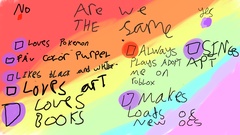 No
Are we
yes
THE same
Loves Pokemon
Fav color Purpel
Likes black and white
Loves art
Loves
BOOKS
Always
Plays Adapt
me on
roblox
SINGS
APT
MAKES
Loads of
New OCS